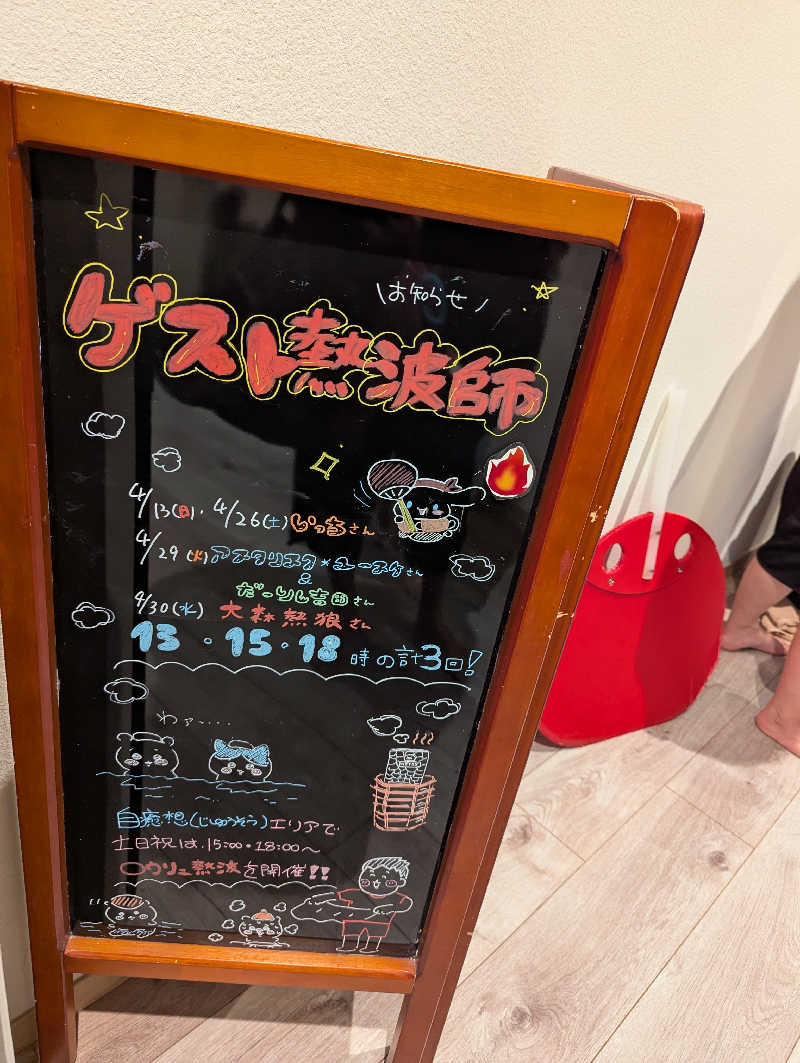 \お知らせ/
ゲスト熱波師
4/13(日)・4/26(土)じっちさん
4/29(火)アステリスク*ユースケさん
&
だーりん吉田さん
4/30(水)大森熱狼さん
13・15・18時の計3回!
わァ〜‥‥
自癒想(じゆうそう)エリアで
土日祝は、15:00・18:00〜
ロウリュ熱波を開催!!